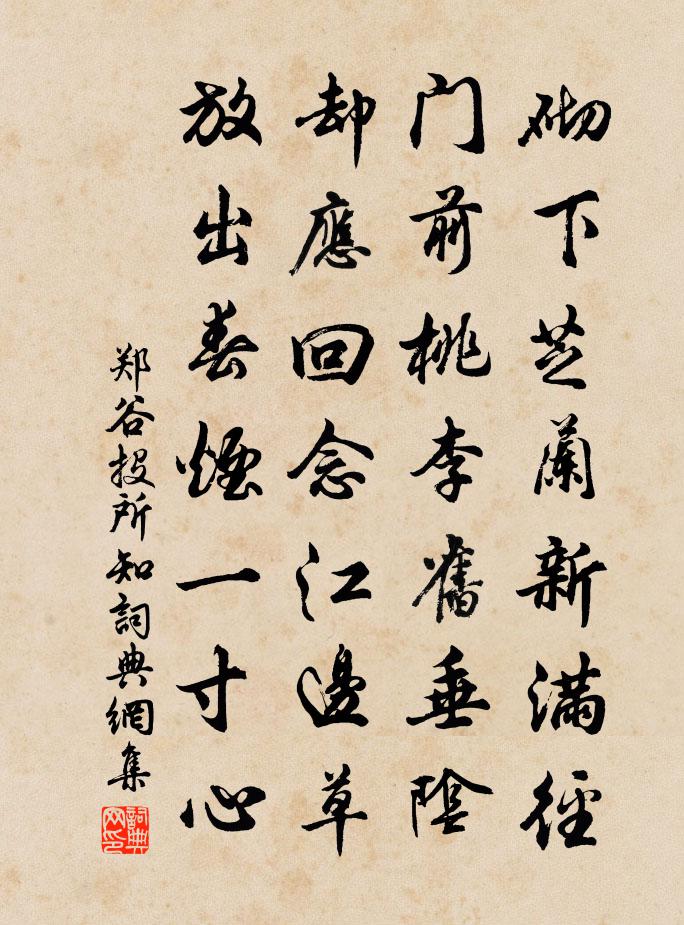 砌下芝蘭新滿徑
門前桃李舊垂陰
却應回念江邊草
放出春煙一寸心
郑谷投所知詞典網集
詞典网印